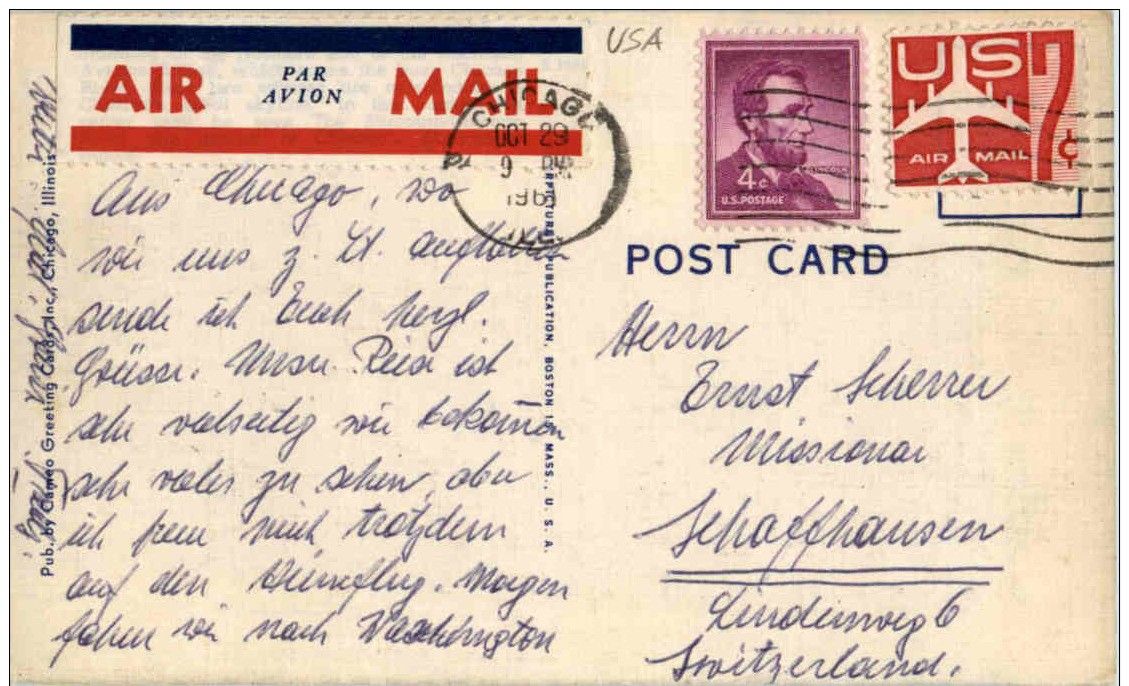 USA
PAR
AVION
AIR MAIL
CHICAGO
OCT 29
9 PM
196
US 7¢
AIR MAIL
4¢
LINCOLN
U.S. POSTAGE
POST CARD
Aus Chicago, wo
wir uns z. Zt. aufhalten
sende ich Euch herzl.
Grüsse. Unsre Reise ist
sehr vielseitig wir bekom̄en
sehr vieles zu sehen, aber
ich freue mich trotzdem
auf den Heimflug. Morgen
fahren wir nach Washington
Herrn
Ernst Scherrer
Missionar
Schaffhausen
Lindenweg 6
Switzerland.
Pub. by Cameo Greeting Cards, Inc., Chicago, Illinois
PUBLICATION, BOSTON 15, MASS., U. S. A.